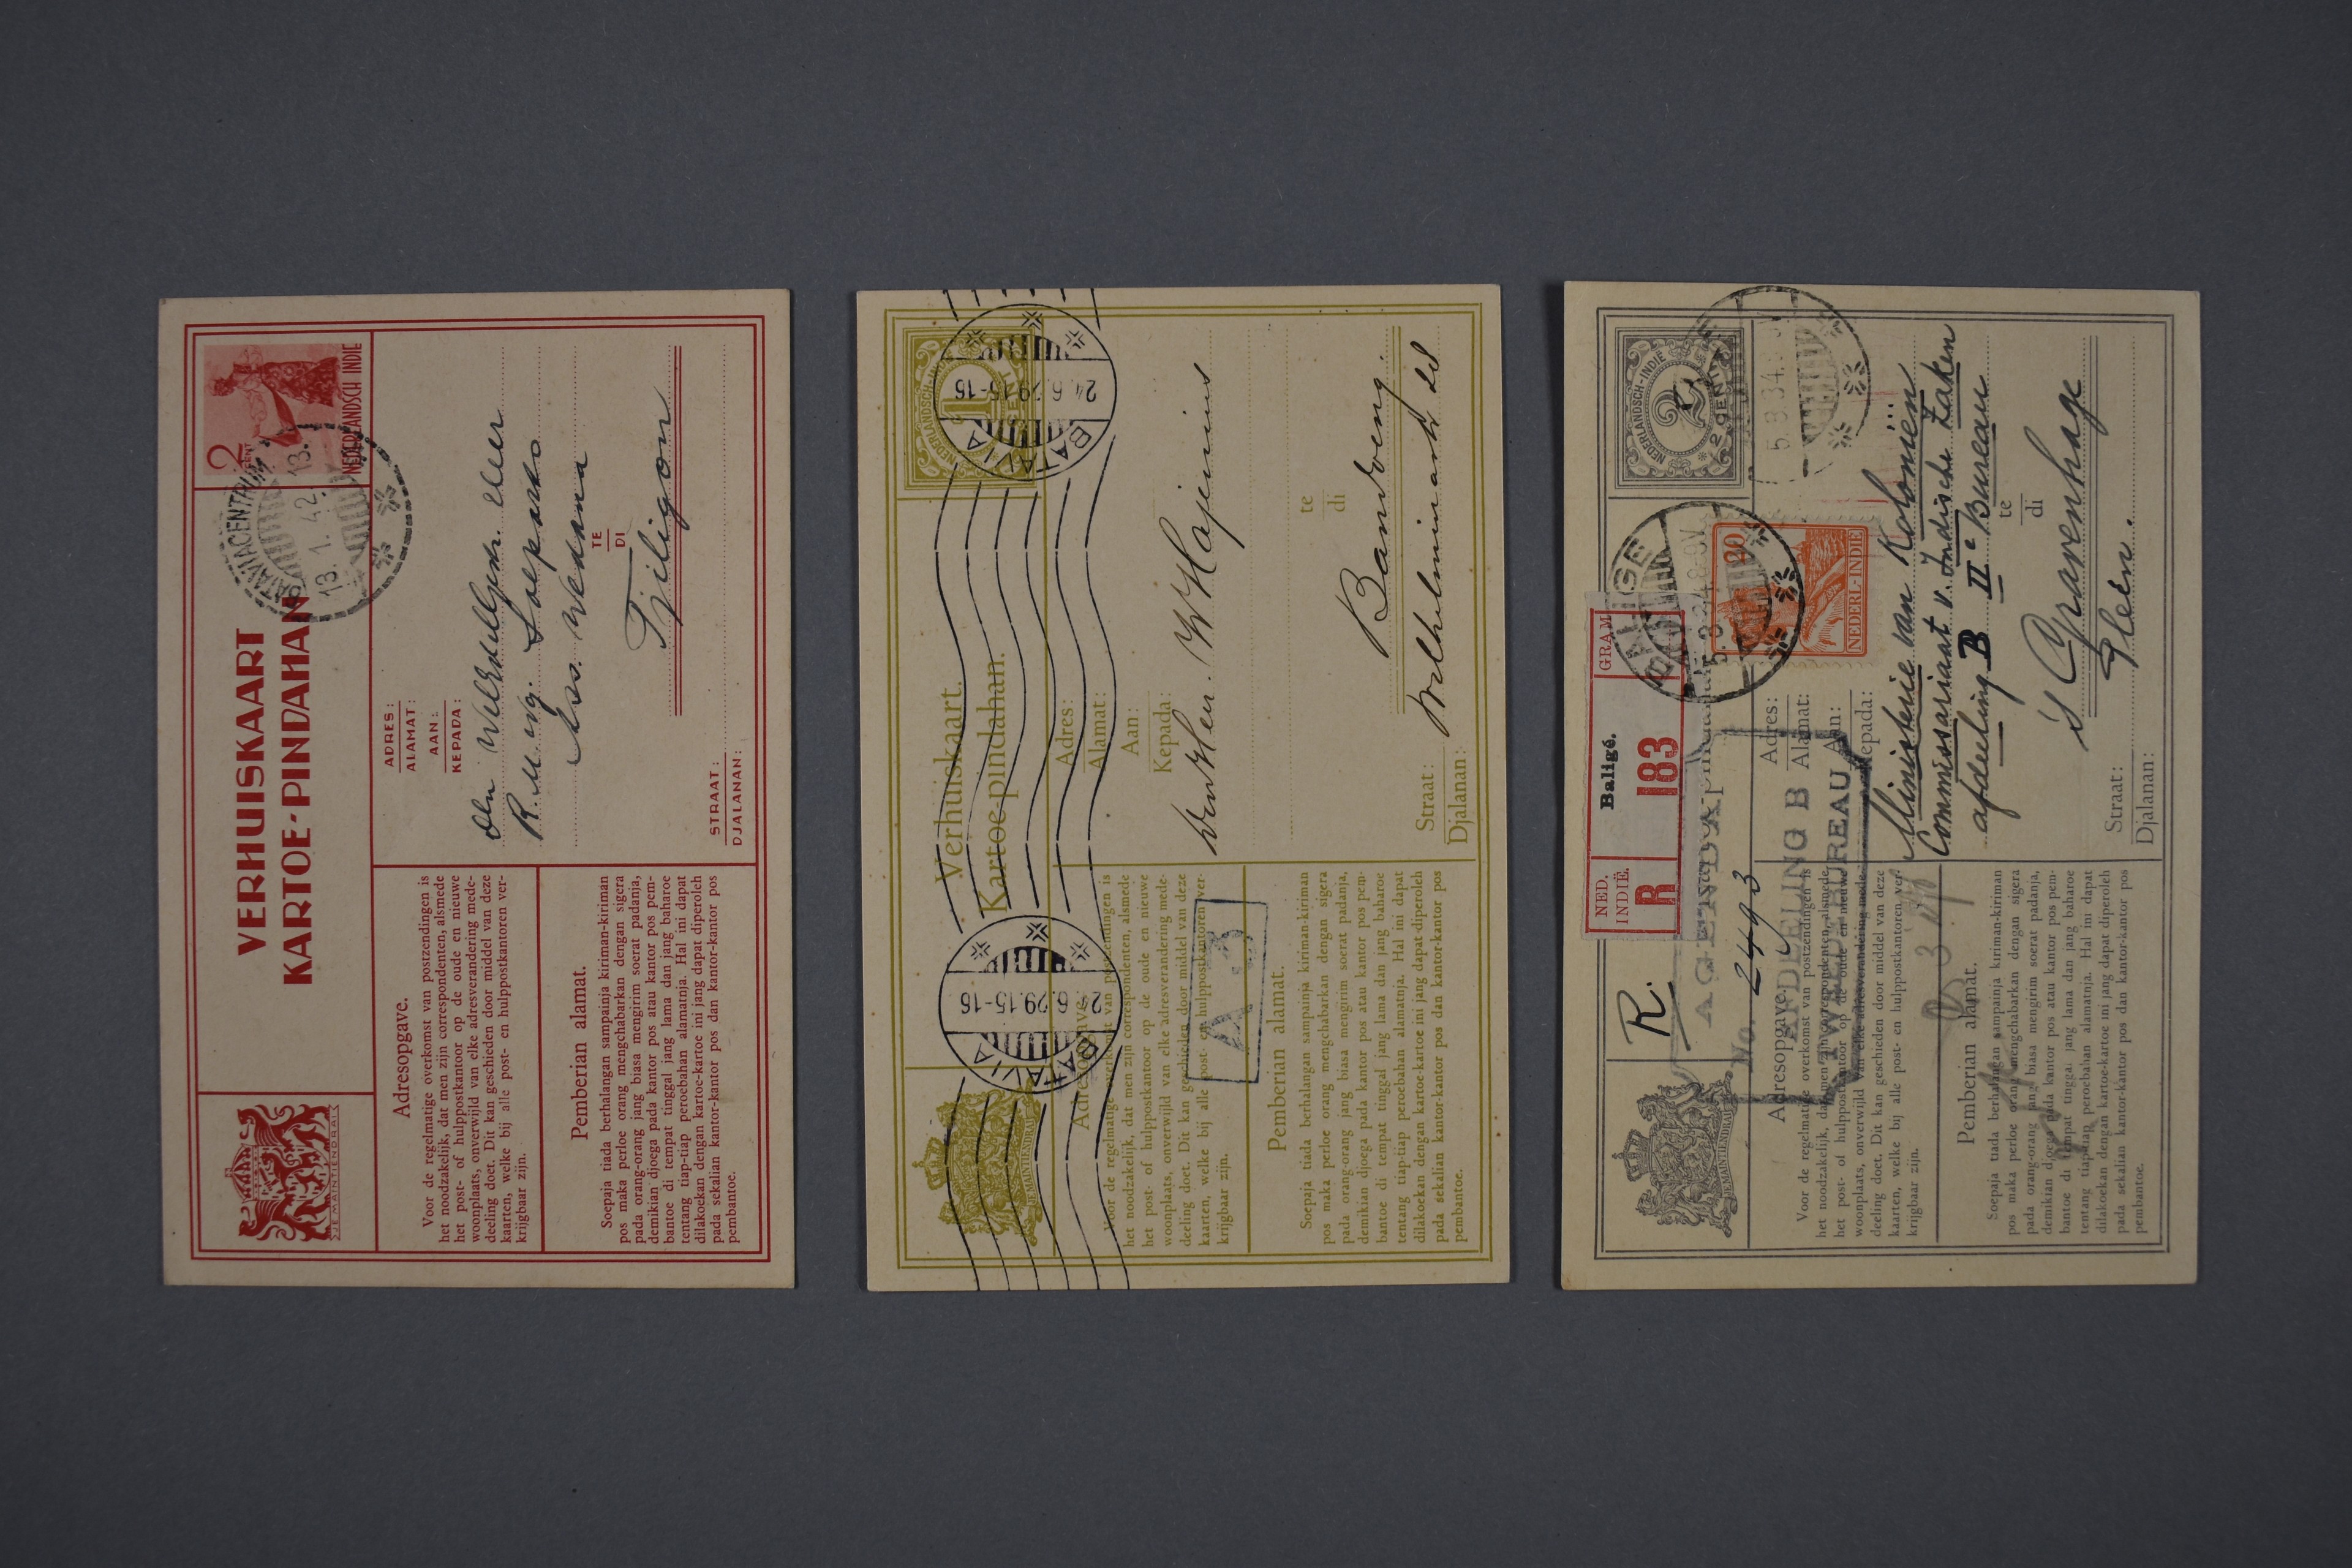 VERHUISKAART
KARTOE-PINDAHAN
2
CENT
NEDERLANDSCH INDIE
BATAVIACENTRUM
13.1.42. 13.
JE MAINTIENDRAI
ADRES:
ALAMAT:
AAN:
KEPADA:
Den
R. M. ng. Soepardo
Ass. Wedana
TE
DI
Tjiligon
STRAAT:
DJALANAN:
Adresopgave.
Voor de regelmatige overkomst van postzendingen is
het noodzakelijk, dat men zijn correspondenten, alsmede
het post- of hulppostkantoor op de oude en nieuwe
woonplaats, onverwijld van elke adresverandering mede-
deeling doet. Dit kan geschieden door middel van deze
kaarten, welke bij alle post- en hulppostkantoren ver-
krijgbaar zijn.
Pemberian alamat.
Soepaja tiada berhalangan sampainja kiriman-kiriman
pos maka perloe orang mengchabarkan dengan sigera
pada orang-orang jang biasa mengirim soerat padanja,
demikian djoega pada kantor pos atau kantor pos pem-
bantoe di tempat tinggal jang lama dan jang baharoe
tentang tiap-tiap peroebahan alamatnja. Hal ini dapat
dilakoekan dengan kartoe-kartoe ini jang dapat diperoleh
pada sekalian kantor-kantor pos dan kantor-kantor pos
pembantoe.
Verhuiskaart.
Kartoe-pindahan.
NEDERLANDSCH-INDIË
1
CENT
BATAVIA
24.6.29.15-16
BATAVIA
24.6.29.15-16
JE MAINTIENDRAI
Adres:
Alamat:
Aan:
Kepada:
den Heer
te
di
Bandoeng
Straat:
Djalanan:
Wilhelminastr
Adresopgave.
Voor de regelmatige overkomst van postzendingen is
het noodzakelijk, dat men zijn correspondenten, alsmede
het post- of hulppostkantoor op de oude en nieuwe
woonplaats, onverwijld van elke adresverandering mede-
deeling doet. Dit kan geschieden door middel van deze
kaarten, welke bij alle post- en hulppostkantoren ver-
krijgbaar zijn.
A 3
Pemberian alamat.
Soepaja tiada berhalangan sampainja kiriman-kiriman
pos maka perloe orang mengchabarkan dengan sigera
pada orang-orang jang biasa mengirim soerat padanja,
demikian djoega pada kantor pos atau kantor pos pem-
bantoe di tempat tinggal jang lama dan jang baharoe
tentang tiap-tiap peroebahan alamatnja. Hal ini dapat
dilakoekan dengan kartoe-kartoe ini jang dapat diperoleh
pada sekalian kantor-kantor pos dan kantor-kantor pos
pembantoe.
R.
NED.
INDIË.
R
Baligé.
183
GRAM
NEDERLANDSCH-INDIË
2
2 CENT 2
BALIGE
5.3.34.8-9V
5.3.34.8-9V
20
NEDERL-INDIE
JE MAINTIENDRAI
AGENDA
No. 2493
AFDEELING B
TWEEDE BUREAU
Adres:
Alamat:
Aan:
Kepada:
Ministerie van Koloniën
Commissariaat v. Indische Zaken
afdeeling B IIe Bureau
te
di
's Gravenhage
Plein.
Straat:
Djalanan:
Adresopgave.
Voor de regelmatige overkomst van postzendingen is
het noodzakelijk, dat men zijn correspondenten, alsmede
het post- of hulppostkantoor op de oude en nieuwe
woonplaats, onverwijld van elke adresverandering mede-
deeling doet. Dit kan geschieden door middel van deze
kaarten, welke bij alle post- en hulppostkantoren ver-
krijgbaar zijn.
Pemberian alamat.
Soepaja tiada berhalangan sampainja kiriman-kiriman
pos maka perloe orang mengchabarkan dengan sigera
pada orang-orang jang biasa mengirim soerat padanja,
demikian djoega pada kantor pos atau kantor pos pem-
bantoe di tempat tinggal jang lama dan jang baharoe
tentang tiap-tiap peroebahan alamatnja. Hal ini dapat
dilakoekan dengan kartoe-kartoe ini jang dapat diperoleh
pada sekalian kantor-kantor pos dan kantor-kantor pos
pembantoe.